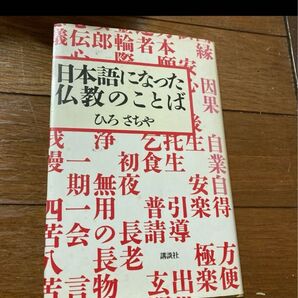 日本語になった
仏教のことば
ひろ さちや
講談社
縁
因果
自業自得
托生
安楽
乞食
引導
普請
初夜
長老
浄
無用の長物
一期一会
我慢
四苦八苦
方便
極楽
玄
言